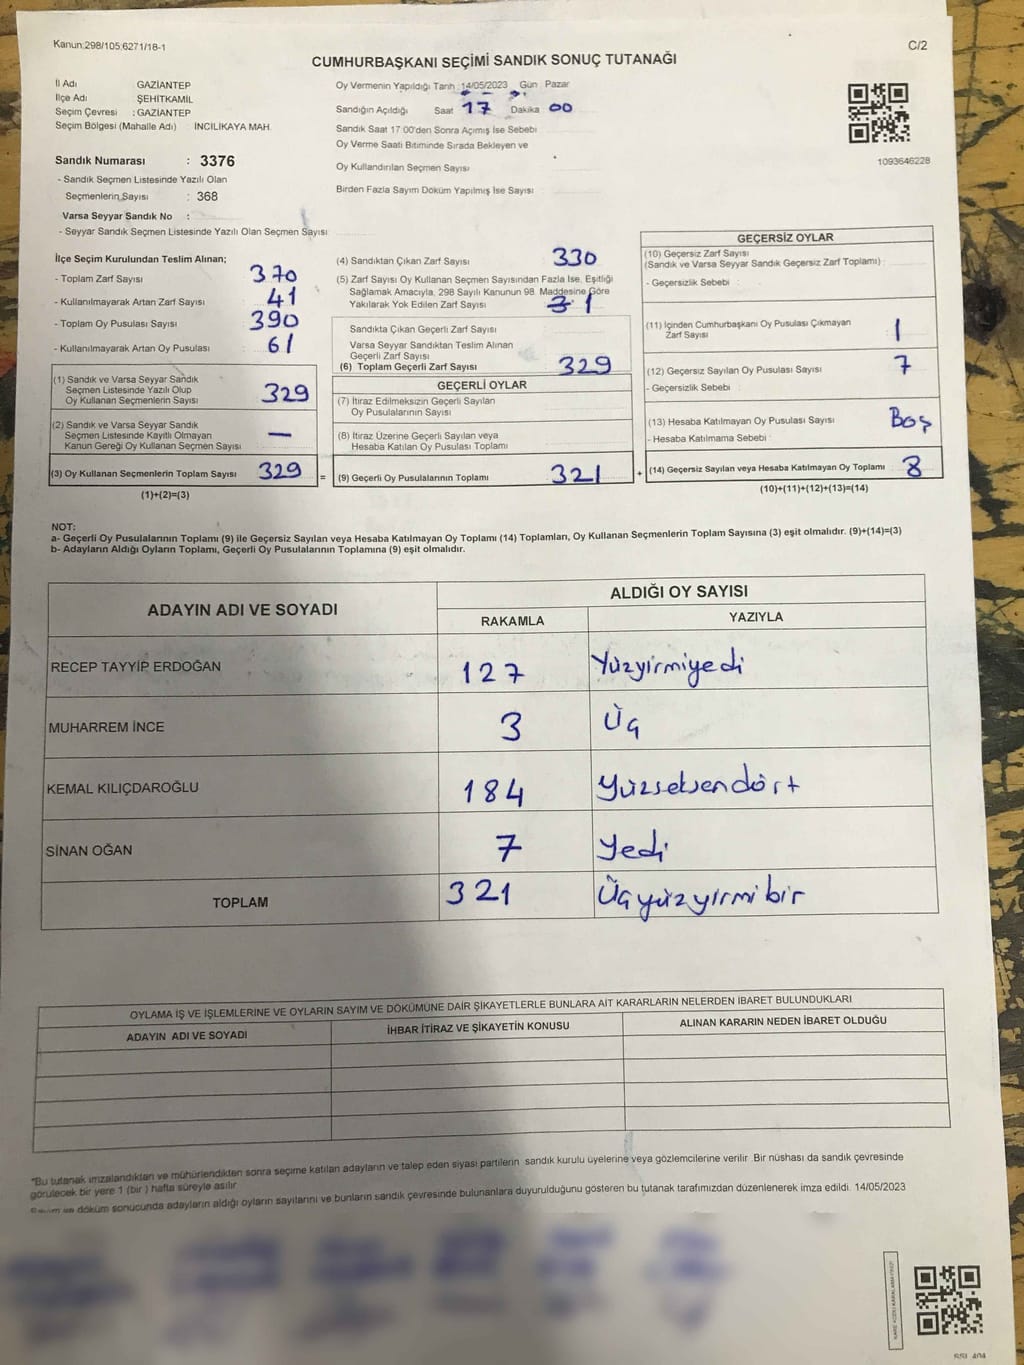 Kanun:298/105;6271/18-1
C/2
CUMHURBAŞKANI SEÇİMİ SANDIK SONUÇ TUTANAĞI
İl Adı GAZİANTEP
İlçe Adı ŞEHİTKAMİL
Seçim Çevresi : GAZİANTEP
Seçim Bölgesi (Mahalle Adı) İNCİLİKAYA MAH.
Oy Vermenin Yapıldığı Tarih : 14/05/2023 Gün Pazar
Sandığın Açıldığı Saat 17 Dakika 00
Sandık Saat 17:00'den Sonra Açılmış İse Sebebi
Oy Verme Saati Bitiminde Sırada Bekleyen ve
Oy Kullandırılan Seçmen Sayısı
Birden Fazla Sayım Döküm Yapılmış İse Sayısı
1093646228
Sandık Numarası : 3376
- Sandık Seçmen Listesinde Yazılı Olan
Seçmenlerin Sayısı : 368
Varsa Seyyar Sandık No :
- Seyyar Sandık Seçmen Listesinde Yazılı Olan Seçmen Sayısı:
İlçe Seçim Kurulundan Teslim Alınan;
- Toplam Zarf Sayısı 370
- Kullanılmayarak Artan Zarf Sayısı 41
- Toplam Oy Pusulası Sayısı 390
- Kullanılmayarak Artan Oy Pusulası 61
(1) Sandık ve Varsa Seyyar Sandık
Seçmen Listesinde Yazılı Olup
Oy Kullanan Seçmenlerin Sayısı 329
(2) Sandık ve Varsa Seyyar Sandık
Seçmen Listesinde Kayıtlı Olmayan
Kanun Gereği Oy Kullanan Seçmen Sayısı —
(3) Oy Kullanan Seçmenlerin Toplam Sayısı 329
(1)+(2)=(3)
(4) Sandıktan Çıkan Zarf Sayısı 330
(5) Zarf Sayısı Oy Kullanan Seçmen Sayısından Fazla İse, Eşitliği
Sağlamak Amacıyla, 298 Sayılı Kanunun 98. Maddesine Göre
Yakılarak Yok Edilen Zarf Sayısı 1
Sandıkta Çıkan Geçerli Zarf Sayısı
Varsa Seyyar Sandıktan Teslim Alınan
Geçerli Zarf Sayısı
(6) Toplam Geçerli Zarf Sayısı 329
GEÇERLİ OYLAR
(7) İtiraz Edilmeksizin Geçerli Sayılan
Oy Pusulalarının Sayısı
(8) İtiraz Üzerine Geçerli Sayılan veya
Hesaba Katılan Oy Pusulası Toplamı
= (9) Geçerli Oy Pusulalarının Toplamı 321
GEÇERSİZ OYLAR
(10) Geçersiz Zarf Sayısı
(Sandık ve Varsa Seyyar Sandık Geçersiz Zarf Toplamı) :
- Geçersizlik Sebebi :
(11) İçinden Cumhurbaşkanı Oy Pusulası Çıkmayan
Zarf Sayısı 1
(12) Geçersiz Sayılan Oy Pusulası Sayısı 7
- Geçersizlik Sebebi :
(13) Hesaba Katılmayan Oy Pusulası Sayısı Boş
- Hesaba Katılmama Sebebi
+ (14) Geçersiz Sayılan veya Hesaba Katılmayan Oy Toplamı 8
(10)+(11)+(12)+(13)=(14)
NOT:
a- Geçerli Oy Pusulalarının Toplamı (9) ile Geçersiz Sayılan veya Hesaba Katılmayan Oy Toplamı (14) Toplamları, Oy Kullanan Seçmenlerin Toplam Sayısına (3) eşit olmalıdır. (9)+(14)=(3)
b- Adayların Aldığı Oyların Toplamı, Geçerli Oy Pusulalarının Toplamına (9) eşit olmalıdır.
ADAYIN ADI VE SOYADI ALDIĞI OY SAYISI
RAKAMLA YAZIYLA
RECEP TAYYİP ERDOĞAN 127 Yüzyirmiyedi
MUHARREM İNCE 3 Üç
KEMAL KILIÇDAROĞLU 184 Yüzseksendört
SİNAN OĞAN 7 Yedi
TOPLAM 321 Üçyüzyirmibir
OYLAMA İŞ VE İŞLEMLERİNE VE OYLARIN SAYIM VE DÖKÜMÜNE DAİR ŞİKAYETLERLE BUNLARA AİT KARARLARIN NELERDEN İBARET BULUNDUKLARI
ADAYIN ADI VE SOYADI İHBAR İTİRAZ VE ŞİKAYETİN KONUSU ALINAN KARARIN NEDEN İBARET OLDUĞU
*Bu tutanak imzalandıktan ve mühürlendikten sonra seçime katılan adayların ve talep eden siyasi partilerin sandık kurulu üyelerine veya gözlemcilerine verilir. Bir nüshası da sandık çevresinde
görülecek bir yere 1 (bir) hafta süreyle asılır.
Sayım ve döküm sonucunda adayların aldığı oyların sayılarını ve bunların sandık çevresinde bulunanlara duyurulduğunu gösteren bu tutanak tarafımızdan düzenlenerek imza edildi. 14/05/2023